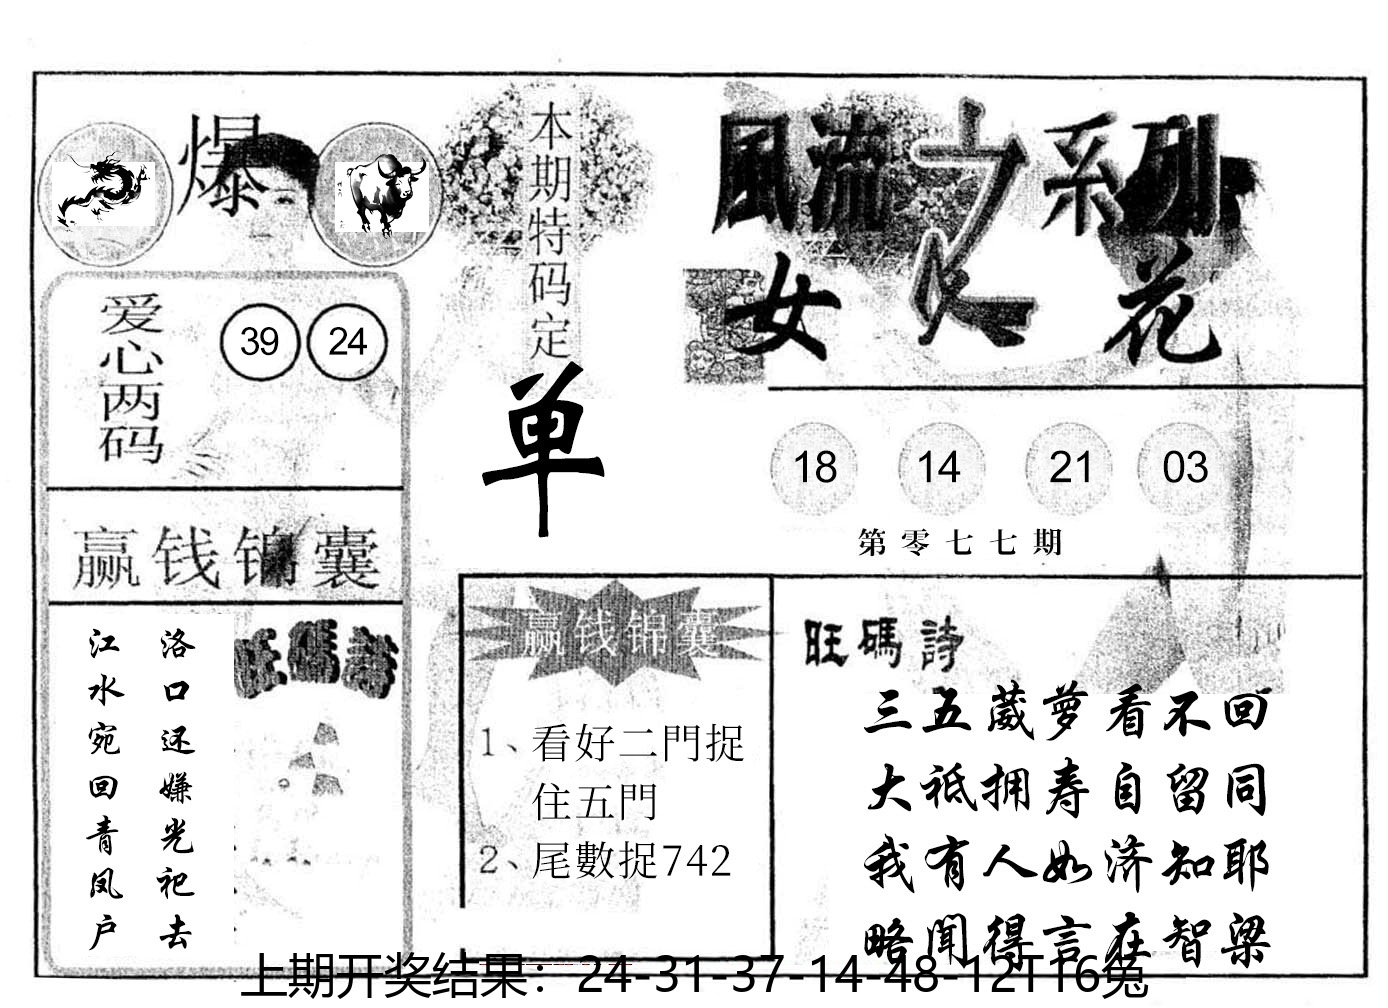 爆
本期特码定
单
風流之系列
女人花
爱心两码
39 24
18 14 21 03
第零七七期
赢钱锦囊
洛口还嫌光祀去
江水宛回青凤户
旺碼詩
赢钱锦囊
1、看好二門捉
住五門
2、尾數捉742
旺碼詩
三五葳萝看不回
大祗拥寿自留同
我有人如济知耶
略闻得言在智梁
上期开奖结果：24-31-37-14-48-12T16兔